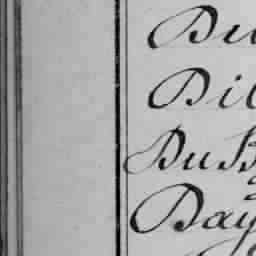 Du
Dil
DuB
Day